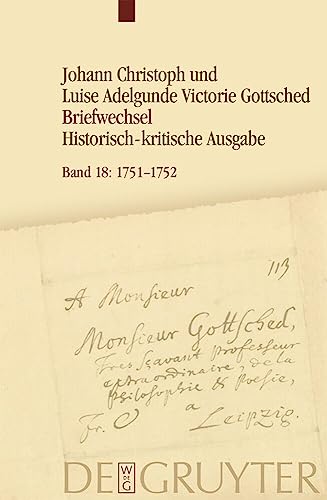 Johann Christoph und
Luise Adelgunde Victorie Gottsched
Briefwechsel
Historisch-kritische Ausgabe
Band 18: 1751–1752
113
A Monsieur
Monsieur Gottsched,
Tres sçavant professeur
extraordinaire, de la
Philosophie & Poesie,
Fr. C a Leipzig.
DE GRUYTER
W
DE
G